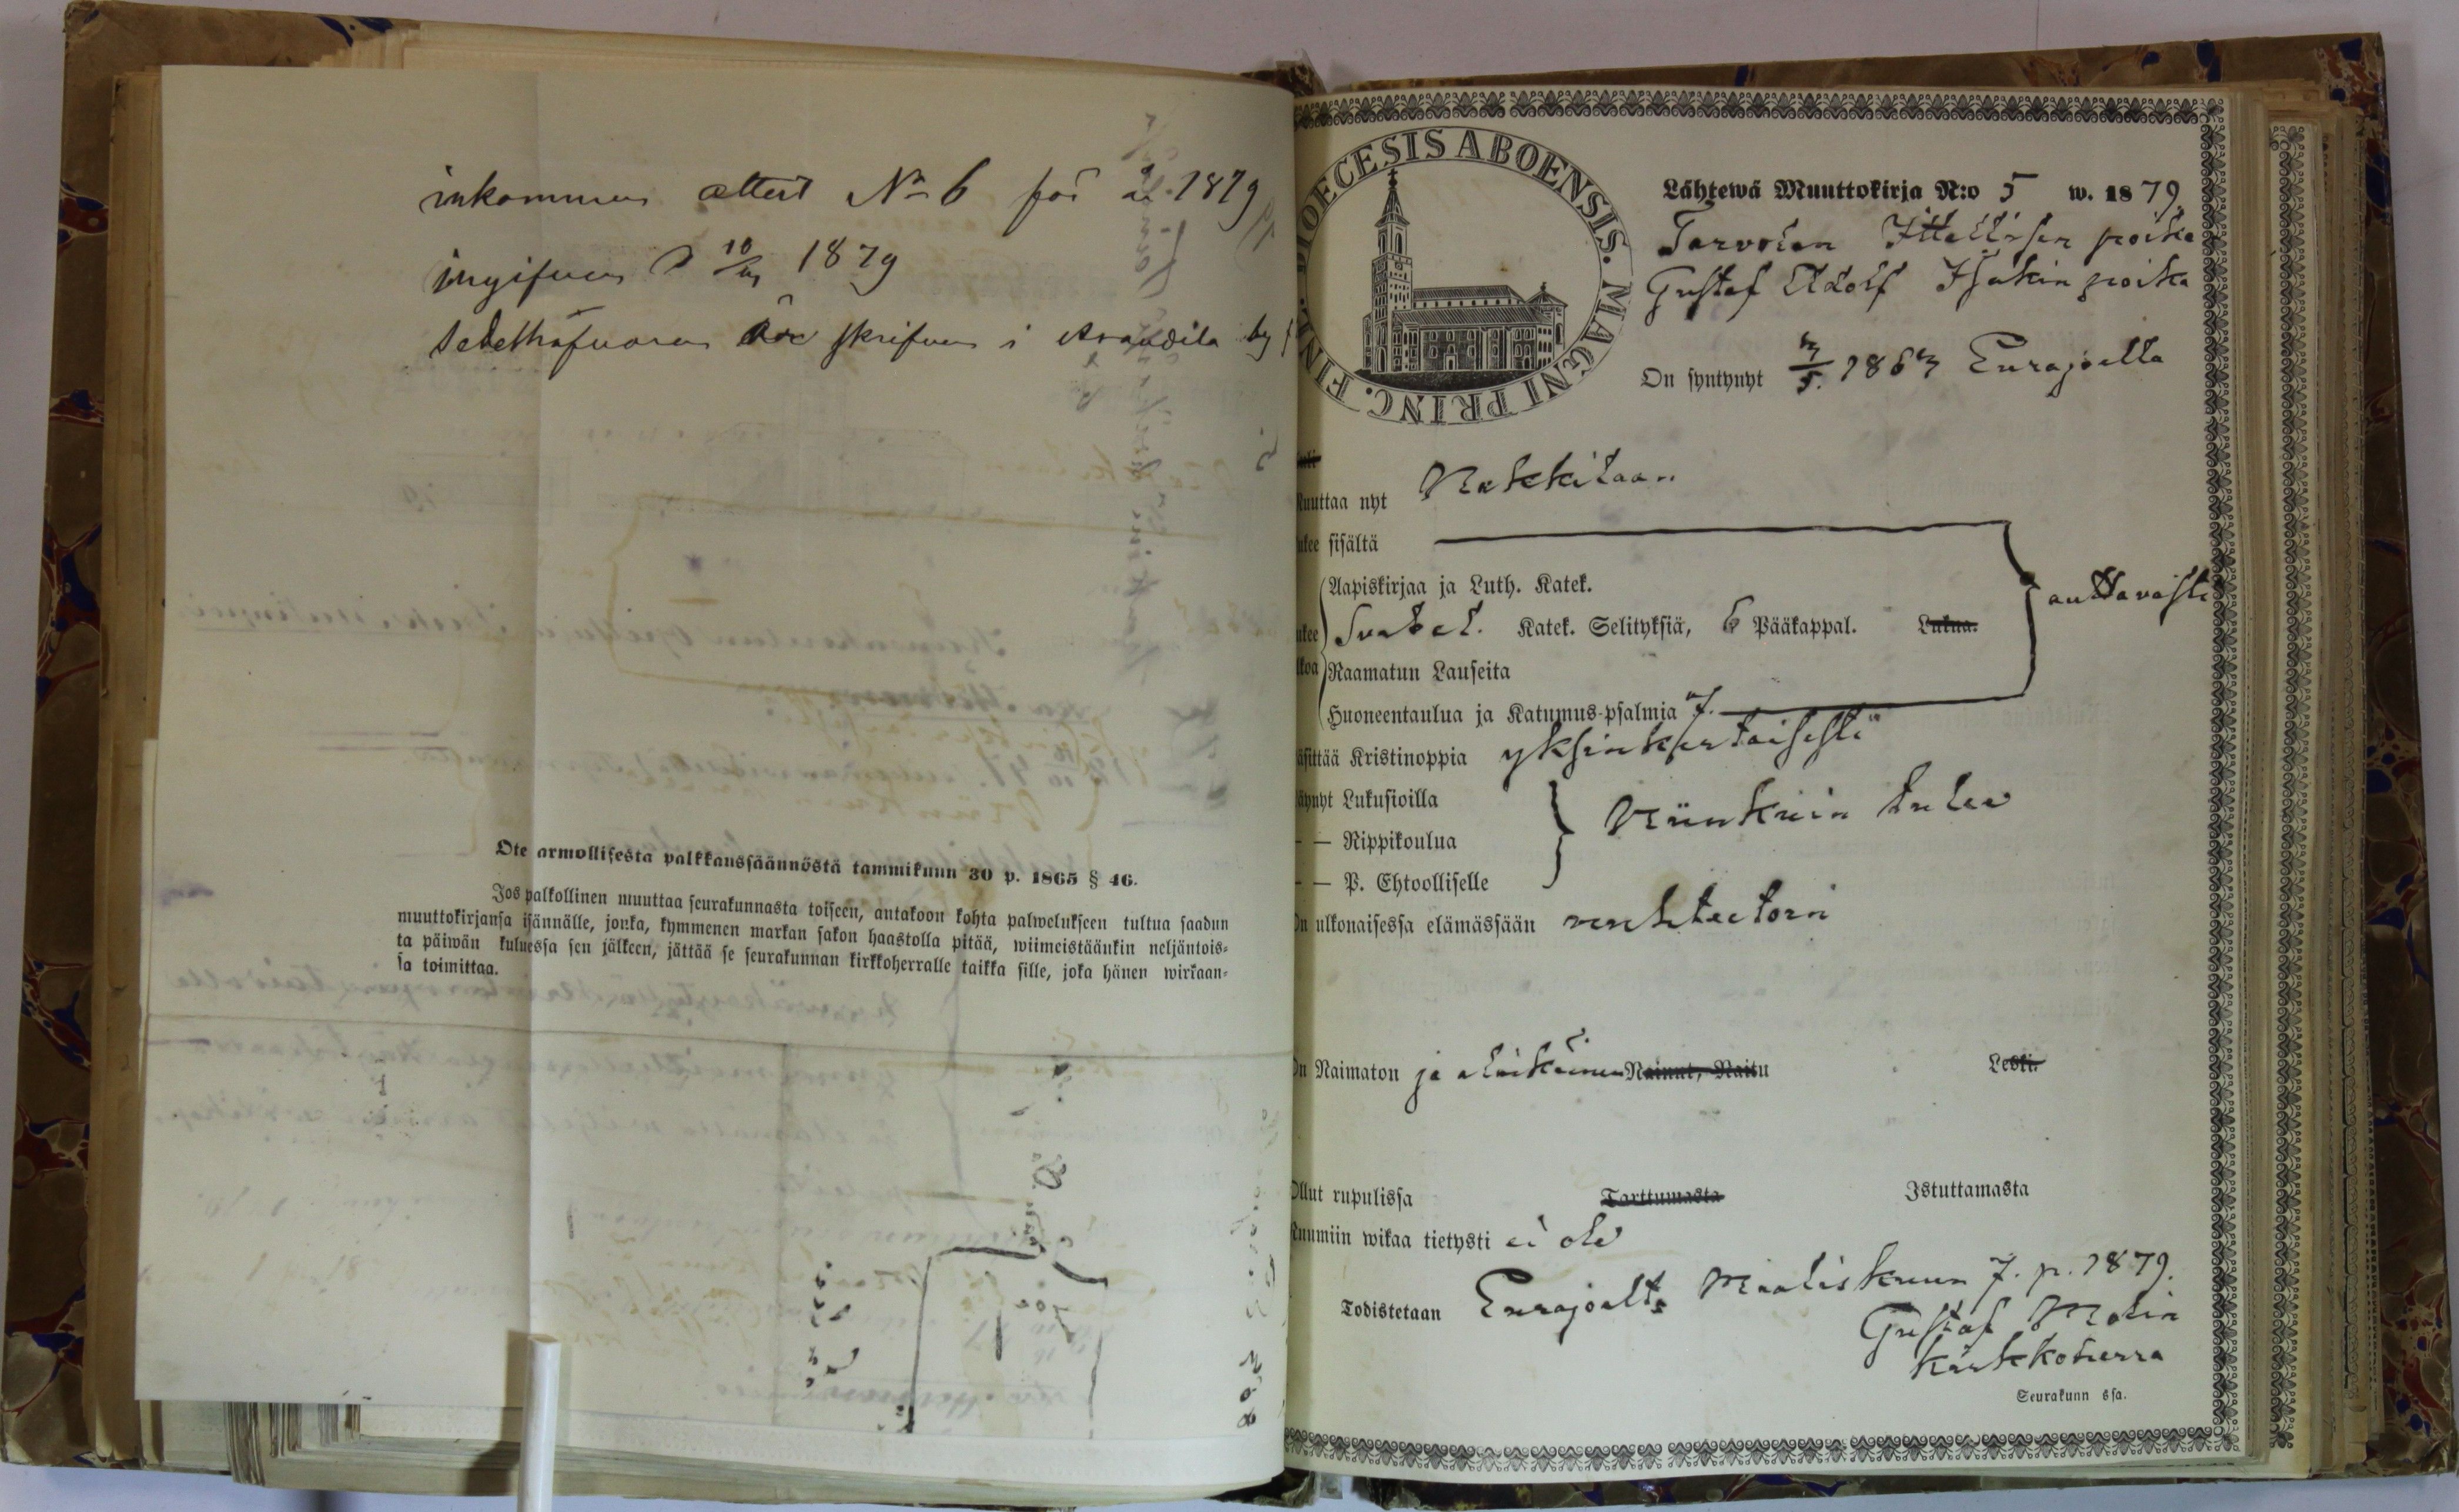 inkommen attest No 6 för år 1879
ingifven d 10/3 1879
skrifven i Arandila by
Ote armollisesta palkkaussäännöstä tammikuun 30 p. 1865 § 46.
Jos palkollinen muuttaa seurakunnasta toiseen, antakoon kohta palwelukseen tultua saadun
muuttokirjansa isännälle, jonka, kymmenen markan sakon haastolla pitää, wiimeistäänkin neljäntois-
ta päiwän kuluessa sen jälkeen, jättää se seurakunnan kirkkoherralle taikka sille, joka hänen wirkaan-
sa toimittaa.
DIOECESIS ABOENSIS. MAGNI PRINC. FINL.
Lähtewä Muuttokirja N:o 5 w. 1879.
Tarvolan Itsellisen poika
Gustaf Adolf Isakin poika
On syntynyt 1863 Eurajoella
Muuttaa nyt Nakkilaan.
Lukee sisältä
Aapiskirjaa ja Luth. Katek.
Svebel. Katek. Selityksiä, 6 Pääkappal. Lukua.
auttavasti
Raamatun Lauseita
Huoneentaulua ja Katumus-psalmia 7.
Käsittää Kristinoppia yksinkertaisesti
Käynyt Lukusioilla
— — Rippikoulua
Niinkuin tulee
— — P. Ehtoolliselle
On ulkonaisessa elämässään nuhteetoin
On Naimaton ja alaikäinen Nainut, Naitu Leski.
Ollut rupulissa Tarttumasta Istuttamasta
Ruumiin wikaa tietysti ei ole
Todistetaan Eurajoelta Maaliskuun 7. p. 1879.
Gustaf Molin
Kirkkoherra
Seurakunn ssa.